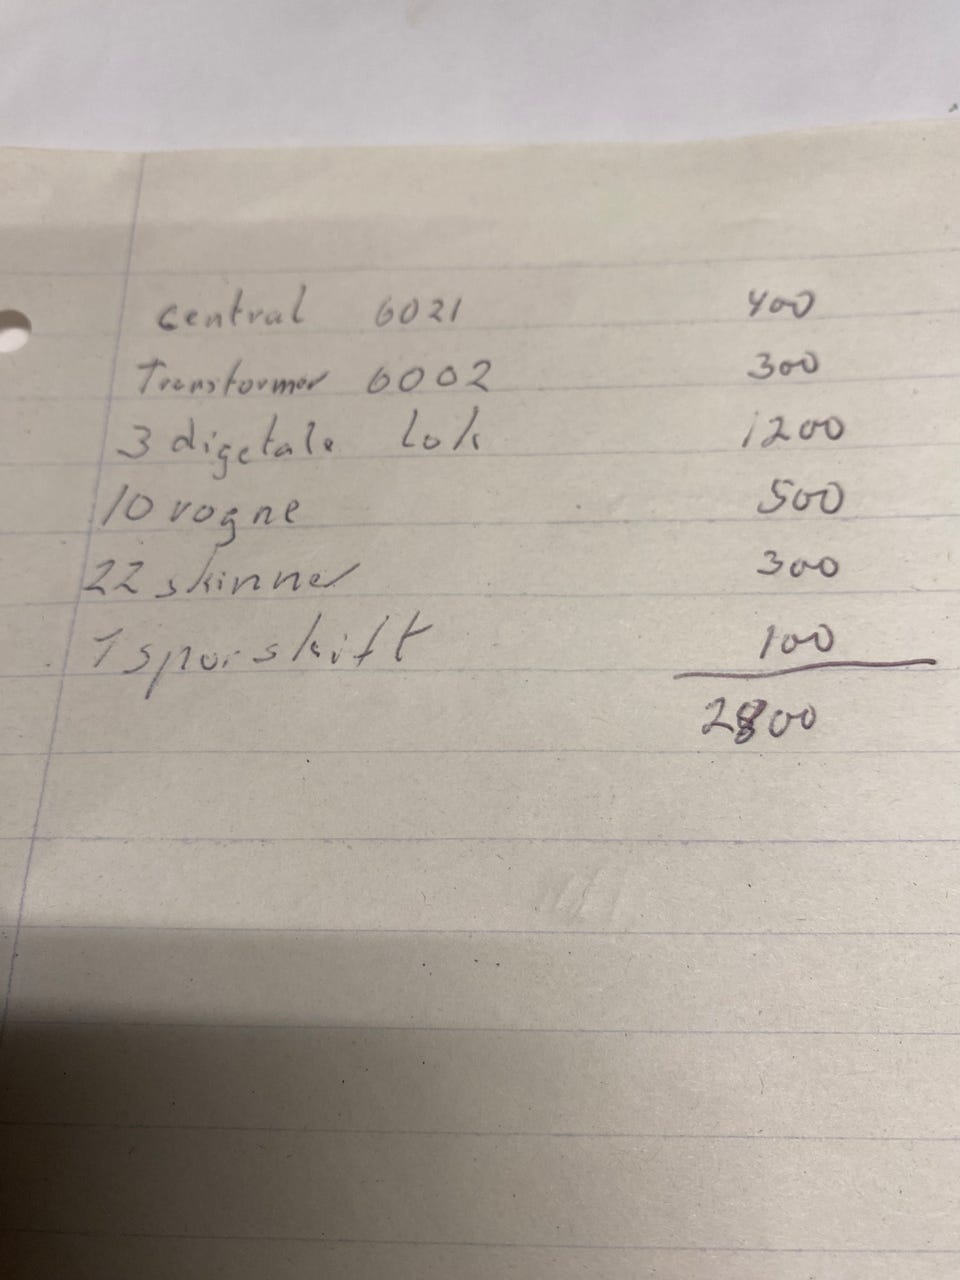 central 6021 400
Transformer 6002 300
3 digetale lok 1200
10 vogne 500
22 skinner 300
1 sporskift 100
2800